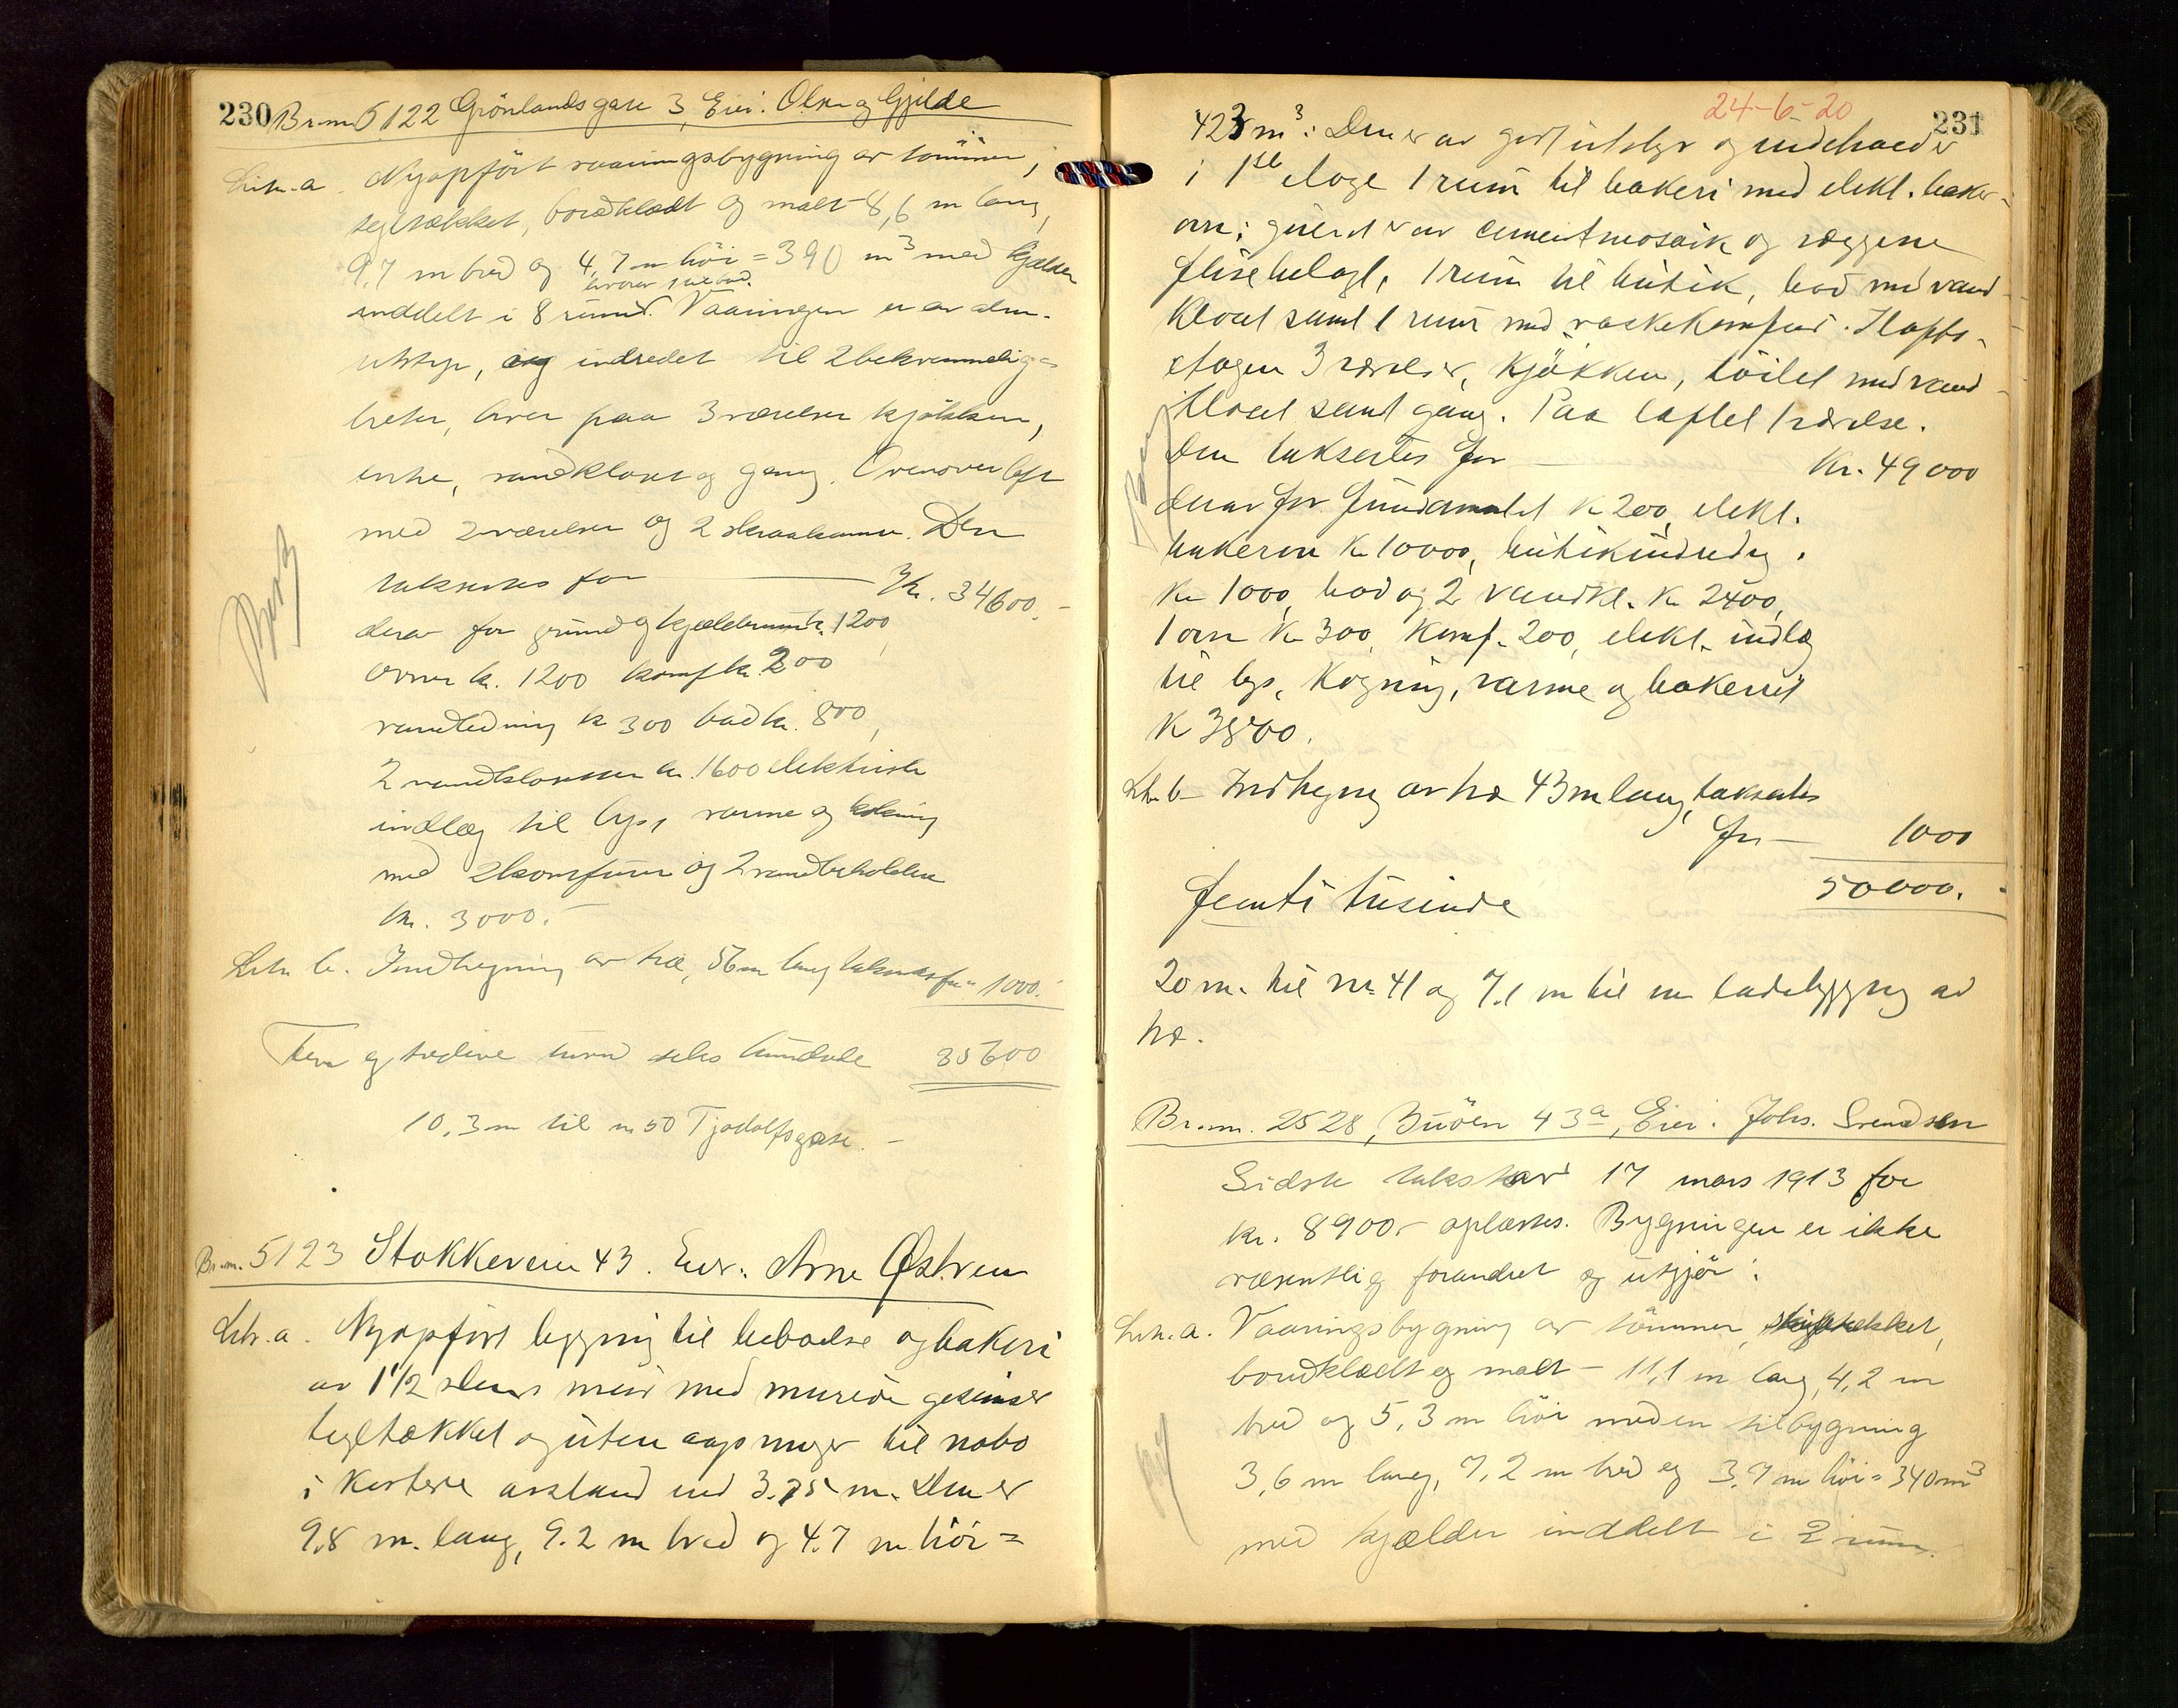 230 Br.nr. 5122 Grönlandsgate 3, Eier: Olsen og Gjilde
Litr. a. Nyopfört vaaningsbygning av tömmer,
tegltækket, bordklædt og malt 8,6 m lang,
9,7 m bred og 4,7 m höi = 390 m³ med kjælder
hvorav 1 til bad.
inddelt i 8 rum. Vaaningen er av alm.
utstyr, og indredet til 2 bekvemmelig-
heter, hver paa 3 værelser kjökken,
entre, vandkloset og gang. Ovenover loft
med 2 værelser og 2 skraakammer. Den
takseres for — Kr. 34600.-
derav for grund og kjælderrum kr. 1200,
ovner kr. 1200 komf kr. 200
vandledning kr 300 bad kr. 800,
2 vandklosetter kr. 1600 elektriske
indlæg til lys, varme og kokning
med 2 komfurer og 2 vandbeholdere
kr. 3000.-
Berg
Litr. b. Indhegning av træ, 56 m lang takseres for " 1000.-
Fem og tredive tusen seks hundrede 35600
10,3 m til nr 50 Tjodolfsgate. -
Br.nr. 5123 Stokkeveien 43. Eier: Arne Østrem
Litr. a. Nyopfört bygning til beboelse og bakeri
av 1 1/2 stens mur med murede gesimser
tegltækket og uten aapninger til nabo
i kortere avstand end 3.75 m. Den er
9.8 m. lang, 9.2 m bred og 4.7 m höi =
24-6-20
231
423 m³. Den er av godt utstyr og indeholder
i 1ste etage 1 rum til bakeri med elekt. baker-
ovn; gulvet er av cementmosaik og væggene
flisebelagt, 1 rum til butik, bad med vand-
kloset samt 1 rum med vaskekomfur. I lofts-
etagen 3 værelser, kjökken, toilet med vand-
kloset samt gang. Paa loftet 1 værelse.
Den taksertes for — Kr. 49000
derav for fundamentet kr 200, elekt.
bakerovn kr 10000, butikindredn.
kr 1000, bad og 2 vandkl. kr 2400,
1 ovn kr 300, komf. 200, elekt. indlæg
til lys, kogning, varme og bakeriet
kr 3800.
Berg
Litr. b Indhegning av træ 43 m lang, taksertes
for — 1000
femti tusinde 50000.
20 m. til nr. 41 og 7.1 m til en ladebygning av
træ.
Br.nr. 2528, Buöen 43a, Eier: Johs. Svendsen
Sidste takst av 17 mars 1913 for
kr. 8900.- oplæstes. Bygningen er ikke
væsentlig forandret og utgjör:
Litr. a. Vaaningsbygning av tömmer, tækket,
bordklædt og malt - 11,1 m lang, 4,2 m
bred og 5,3 m höi med en tilbygning
3,6 m lang, 7,2 m bred og 3,7 m höi = 340 m³
med kjælder inddelt i 2 rum.